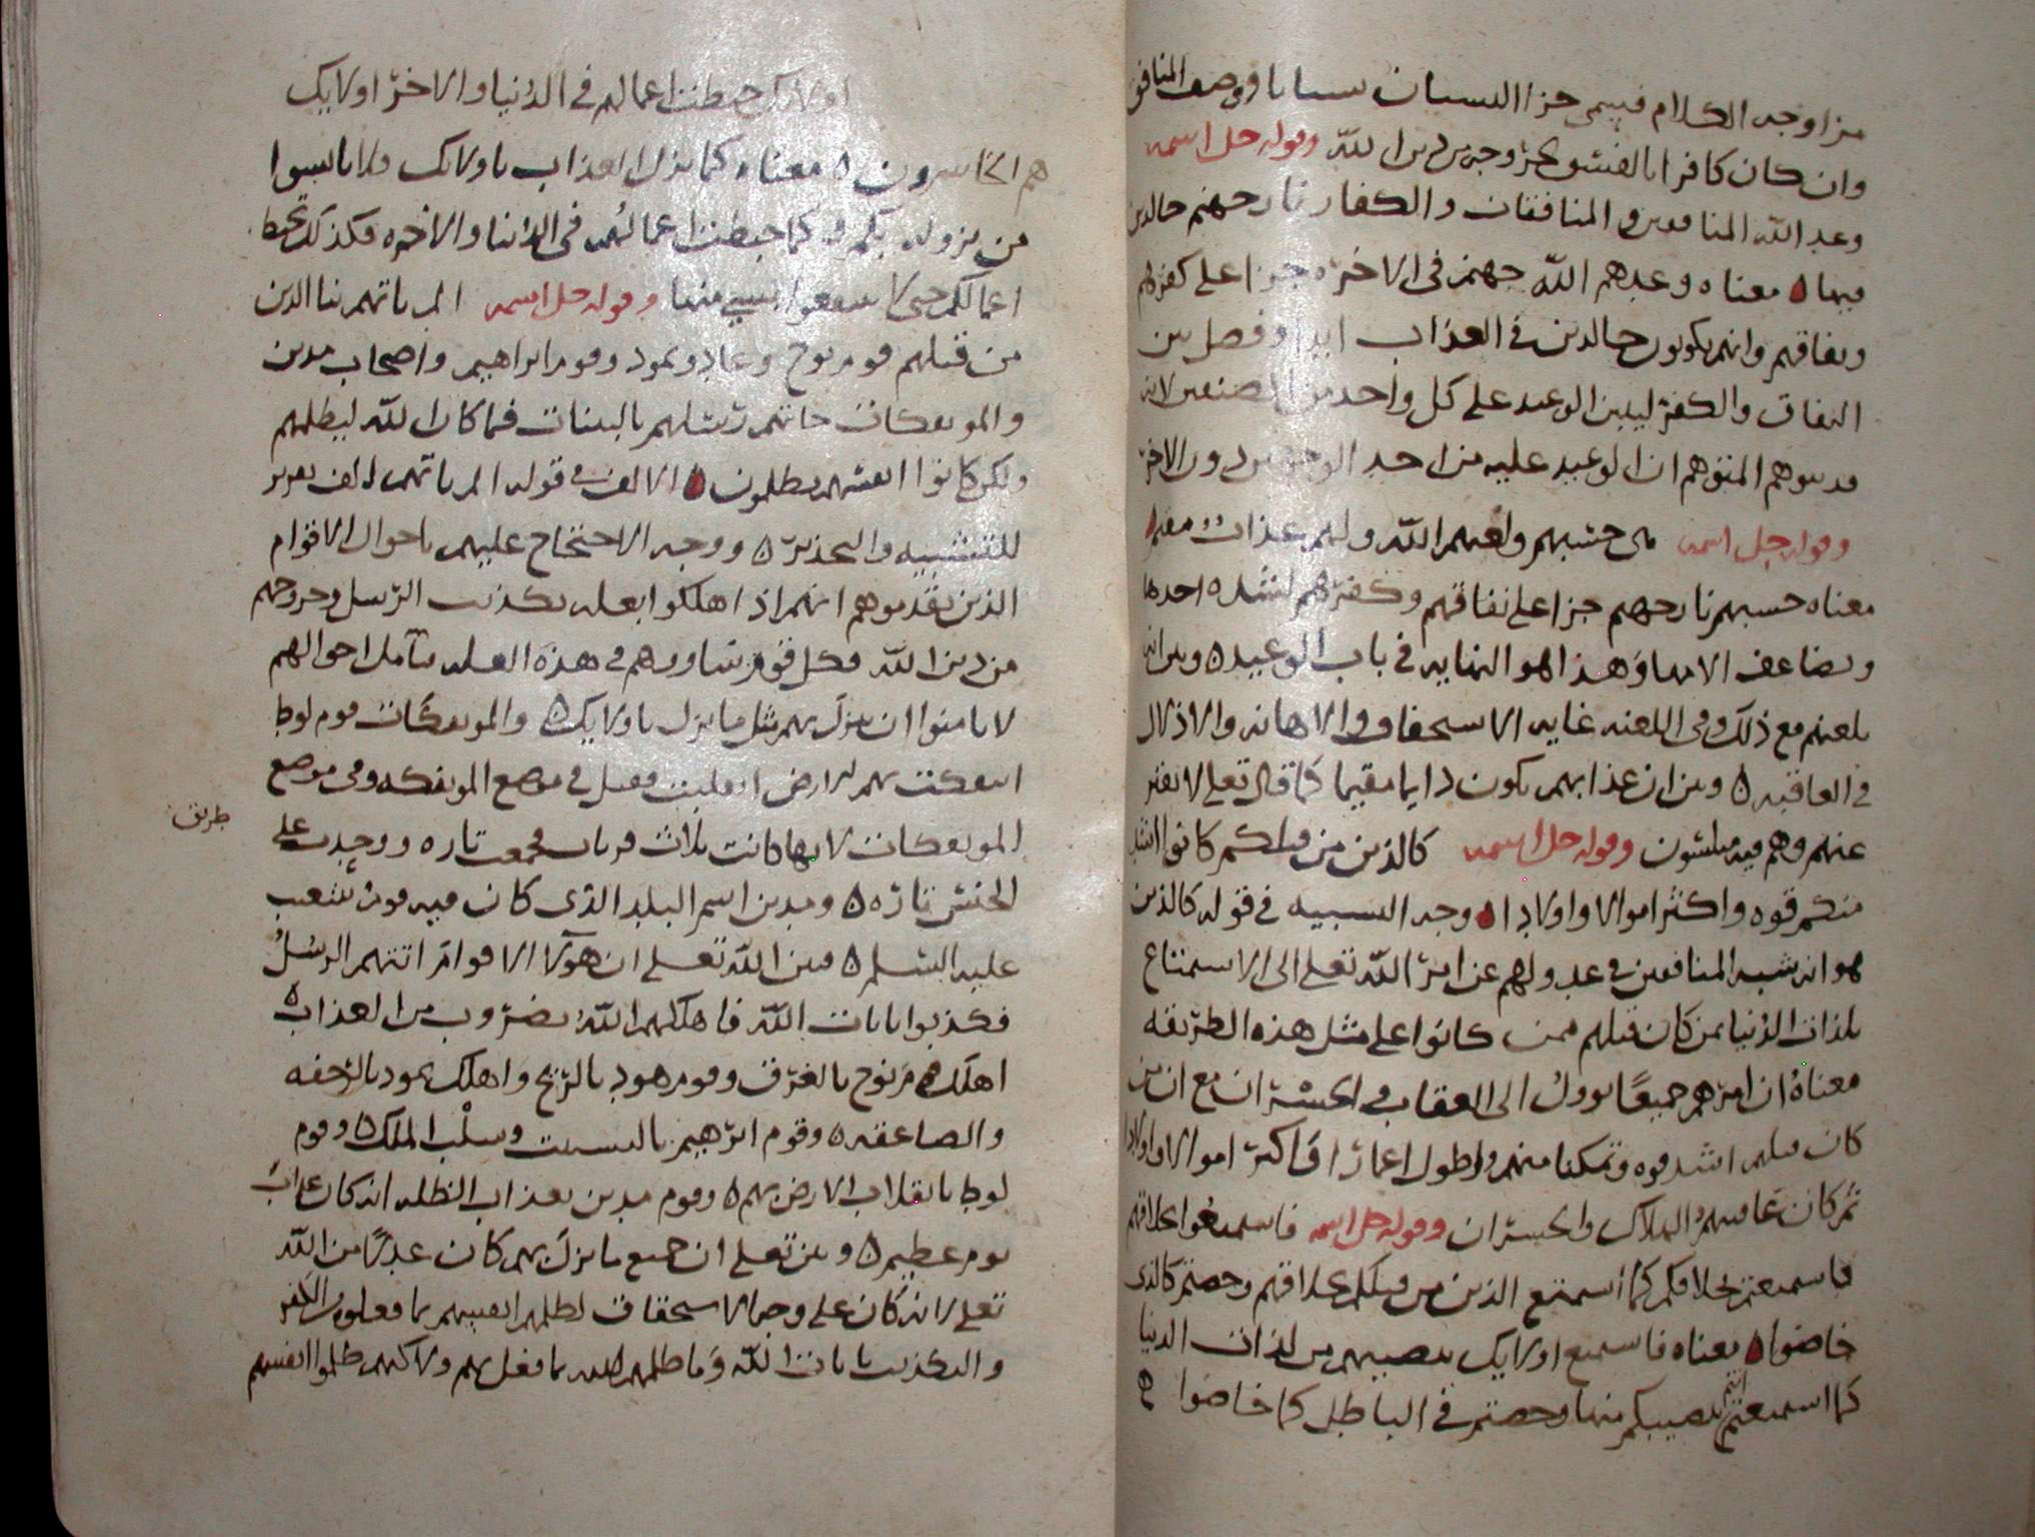 من اوجه الكلام فيسمى جزا النسيان نسيانا ووصف المنافق
وان كان كافرا بالفسق لخروجه من دين الله وقوله جل اسمه
وعد الله المنافقين والمنافقات والكفار نار جهنم خالدين
فيها ه معناه وعدهم الله جهنم في الاخره جزا على كفرهم
ونفاقهم وانهم يكونون خالدين في العذاب ابدا وفصل بين
النفاق والكفر ليبين الوعيد على كل واحد من الصنفين لانه
قد يتوهم المتوهم ان الوعيد عليه من احد الوجهين دون الاخر
وقوله جل اسمه هي حسبهم ولعنهم الله ولهم عذاب مقيم
معناه حسبهم نار جهنم جزا على نفاقهم وكفرهم لشده احدها
وتضاعف الامها وهذا هو النهايه في باب الوعيد ه وبين انه
يلعنهم مع ذلك وفي اللعنه غايه الاستخفاف والاهانه والاذلال
في العاقبه ه وبين ان عذابهم يكون دايما مقيما كما قال تعلى لا يفتر
عنهم وهم فيه مبلسون وقوله جل اسمه كالذين من قبلكم كانوا اشد
منكم قوه واكثر اموالا واولادا ه وجه التشبيه في قوله كالذين
هو انه شبه المنافقين في عدولهم عن امر الله تعلى الى الاستمتاع
بلذات الدنيا بمن كان قبلهم ممن كانوا على مثل هذه الطريقه
معناه ان امرهم جميعا يوول الى العقاب والخسران مع ان من
كان قبلهم اشد قوه وتمكنا منهم واطول اعمارا واكثر اموالا واولادا
ثم كان عاقبتهم الهلاك والخسران وقوله جل اسمه فاستمتعوا بخلاقهم
فاستمتعتم بخلاقكم كما استمتع الذين من قبلكم بخلاقهم وخضتم كالذي
خاضوا ه معناه فاستمتع اولايك بنصيبهم من لذات الدنيا
كما استمتعتم انتم بنصيبكم منها وخضتم في الباطل كما خاضوا ه
اولايك حبطت اعمالهم في الدنيا والاخره اولايك
هم الخاسرون ه معناه كما نزل العذاب باولايك فلا تاسوا
من نزوله بكم وكما حبطت اعمالهم في الدنيا والاخره فكذلك تحبط
اعمالكم حتى لا تنتفعوا بشي منها وقوله جل اسمه الم ياتهم نبا الذين
من قبلهم قوم نوح وعاد وثمود وقوم ابراهيم واصحاب مدين
والموتفكات جاتهم رسلهم بالبينات فما كان الله ليظلمهم
ولكن كانوا انفسهم يظلمون ه الالف في قوله الم ياتهم الف تقرير
للتنبيه والتحذير ه ووجه الاحتجاج عليهم باحوال الاقوام
الذين تقدموهم انهم اذ اهلكوا بعله تكذيب الرسل وخروجهم
من دين الله فكل قوم يساوونهم في هذه العله بتامل احوالهم
لا يامنوا ان ينزل بهم مثل ما نزل باولايك ه والموتفكات قوم لوط
ائتفكت بهم الارض انقلبت فقيل في موضع الموتفكه وفي موضع
الموتفكات لانها كانت ثلاث قريات فجمعت تاره ووحدت على
طريق
الجنس تاره ه ومدين اسم البلد الذي كان فيه قوم شعيب
عليه السلم ه فبين الله تعلى ان هولا الاقوام اتتهم الرسل
فكذبوا بايات الله فاهلكهم الله بضروب من العذاب ه
اهلك قوم نوح بالغرق وقوم هود بالريح واهلك ثمود بالرجفه
والصاعقه ه وقوم ابرهيم بالتشتت وسلب الملك ه وقوم
لوط بانقلاب الارض بهم ه وقوم مدين بعذاب الظله انه كان عذاب
يوم عظيم ه وبين تعلى ان جميع ما نزل بهم كان عدلا من الله
تعلى لانه كان على وجه الاستحقاق لظلمهم انفسهم بما فعلوه من الكفر
والتكذيب بايات الله وما ظلمهم الله بما فعل بهم ولاكنهم ظلموا انفسهم